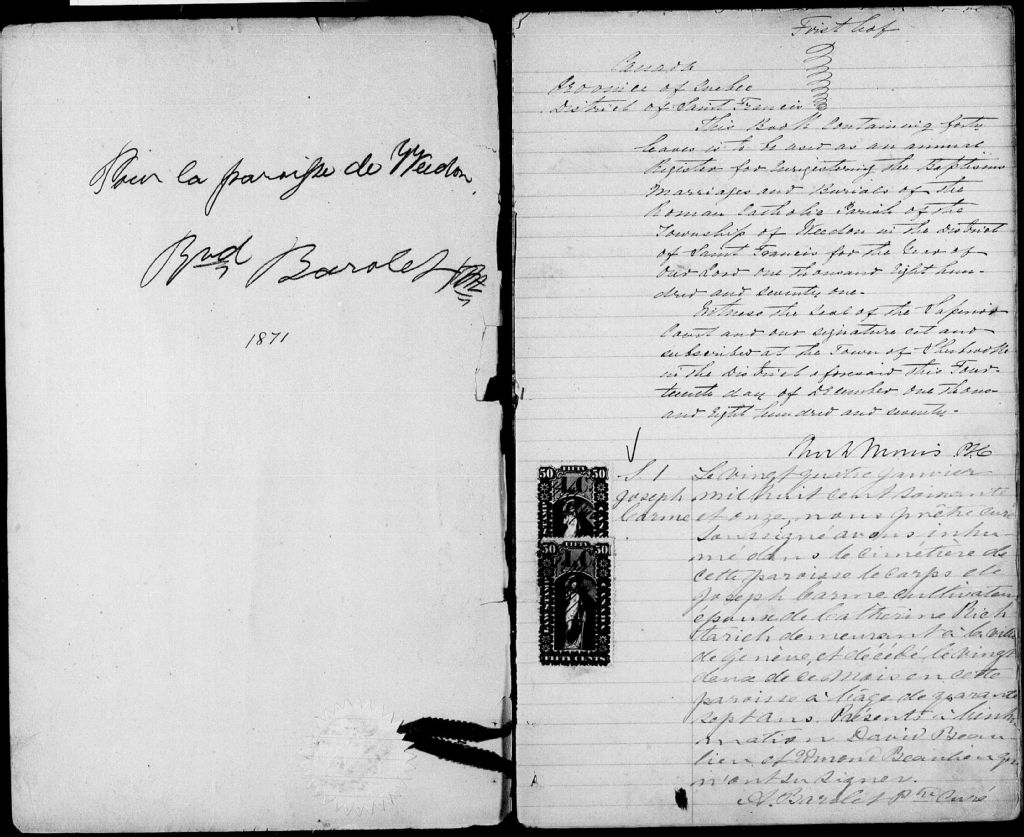 Pour la paroisse de Weedon.
Barolet Ptre
1871
First leaf
Canada
Province of Quebec
District of Saint Francis
This Book Containing forty
leaves is to be used as an annual
Register for Enregistering the Baptisms
Marriages and Burials of the
Roman Catholic Parish of the
Township of Weedon in the district
of Saint Francis for the Year of
Our Lord One thousand Eight hun-
dred and seventy one.
Witness the Seal of the Superior
Court and our signature set and
subscribed at the Town of Sherbrooke
in the District aforesaid this Four-
teenth day of December One thous-
and Eight hundred and seventy.
Morris
S. 1
Joseph
Carme
50 FIFTY 50
LAW STAMP
50 FIFTY 50
LAW STAMP
CANADA
FIFTY CENTS
Le vingt quatre janvier
mil huit cent soixante
et onze, nous prêtre curé
soussigné avons inhu
mé dans le cimetière de
cette paroisse le corps de
Joseph Carme cultivateur
époux de Catherine Rich
demeurant à la ville
de Genève, et décédé le vingt
deux de ce mois en cette
paroisse à l'âge de quarante
sept ans. Présents à l'inhu
mation David Beau
lieu et Edmond Beaulieu qui
n'ont su signer.
Barolet Ptre Curé